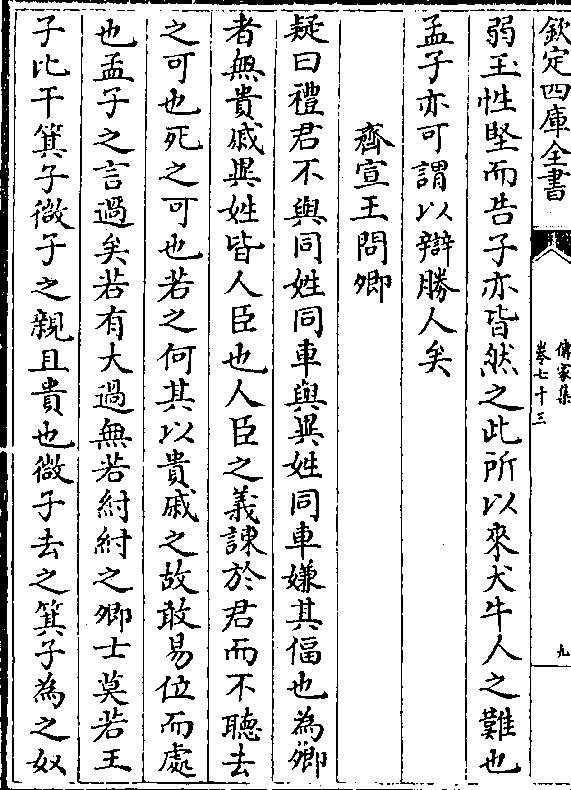 欽定四庫全書
傳家集
卷七十三
九
弱玉性堅而告子亦皆然之此所以來犬牛人之難也
孟子亦可謂以辯勝人矣
齊宣王問卿
疑曰禮君不與同姓同車與異姓同車嫌其偪也為卿
者無貴戚異姓皆人臣也人臣之義諫於君而不聽去
之可也死之可也若之何其以貴戚之故敢易位而處
也孟子之言過矣若有大過無若紂紂之卿士莫若王
子比干箕子微子之親且貴也微子去之箕子為之奴